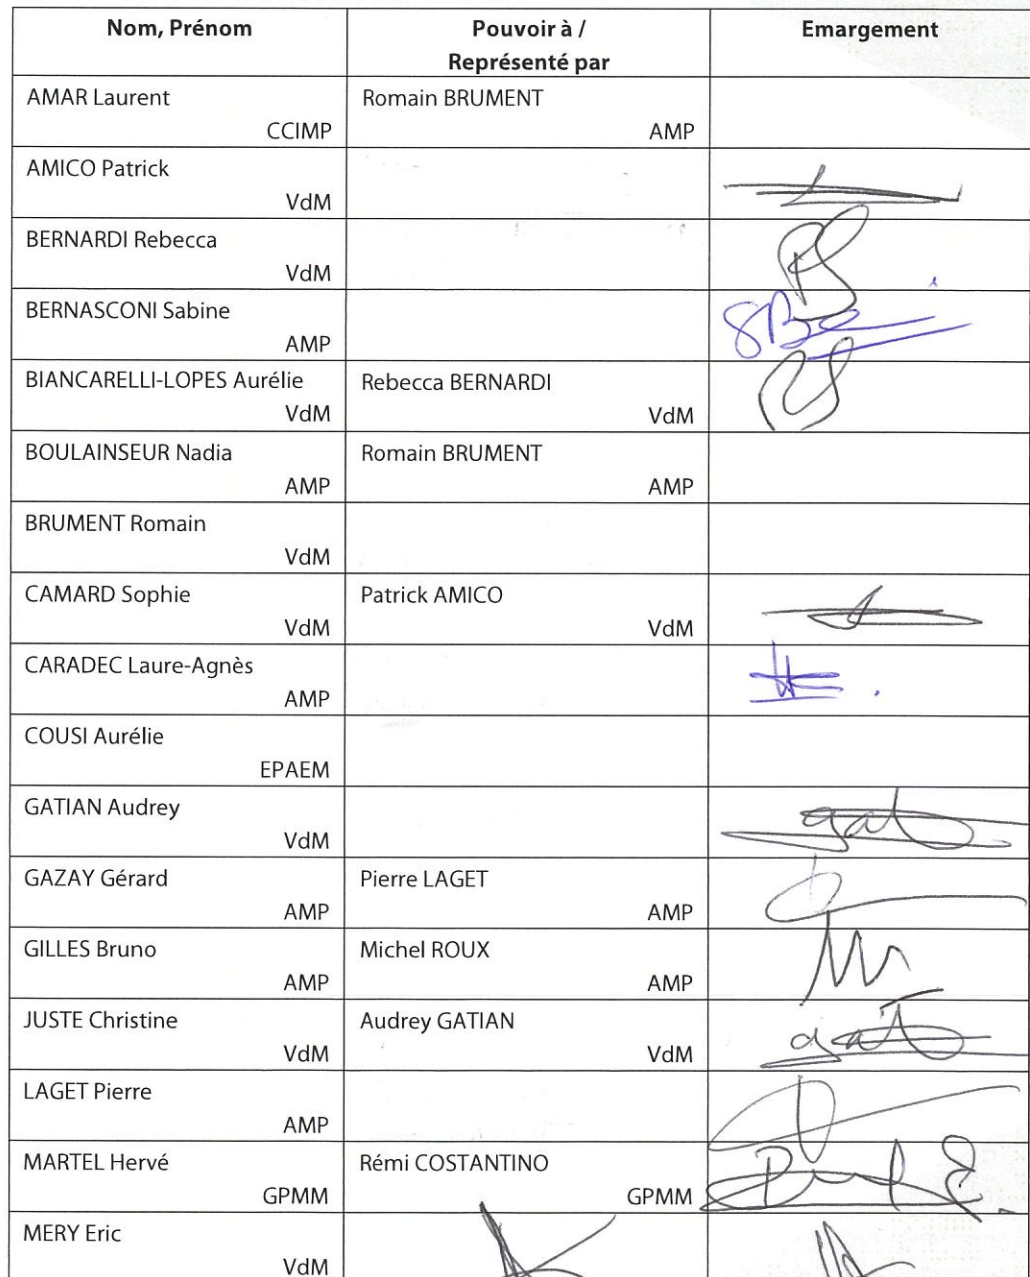 Nom, Prénom Pouvoir à / Emargement
Représenté par
AMAR Laurent Romain BRUMENT
CCIMP AMP
AMICO Patrick
VdM
BERNARDI Rebecca
VdM
BERNASCONI Sabine
AMP
BIANCARELLI-LOPES Aurélie Rebecca BERNARDI
VdM VdM
BOULAINSEUR Nadia Romain BRUMENT
AMP AMP
BRUMENT Romain
VdM
CAMARD Sophie Patrick AMICO
VdM VdM
CARADEC Laure-Agnès
AMP
COUSI Aurélie
EPAEM
GATIAN Audrey
VdM
GAZAY Gérard Pierre LAGET
AMP AMP
GILLES Bruno Michel ROUX
AMP AMP
JUSTE Christine Audrey GATIAN
VdM VdM
LAGET Pierre
AMP
MARTEL Hervé Rémi COSTANTINO
GPMM GPMM
MERY Eric
VdM